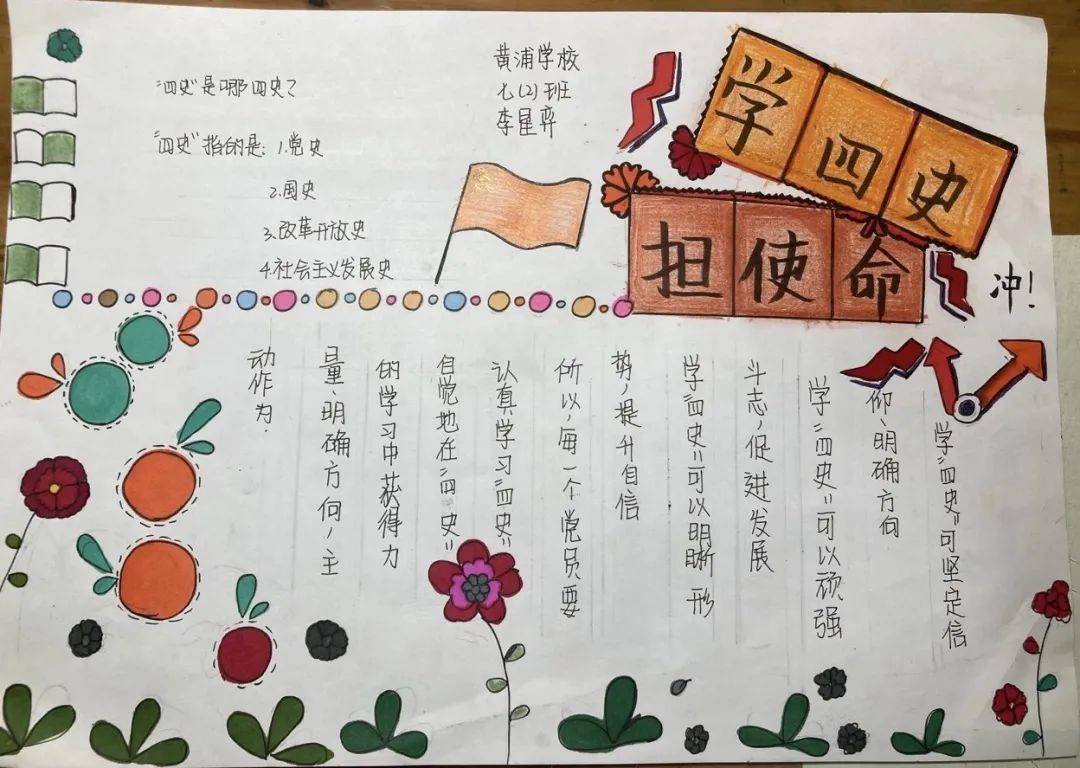 学四史
担使命
冲！
黄浦学校
七（2）班
李星弈
“四史”是哪四史？
“四史”指的是：1.党史
2.国史
3.改革开放史
4.社会主义发展史
学“四史”可坚定信
仰、明确方向
学“四史”可以顽强
斗志，促进发展
学“四史”可以明晰形
势，提升自信
所以，每一个党员要
认真学习“四史”
自觉地在“四史”
的学习中获得力
量、明确方向，主
动作为.